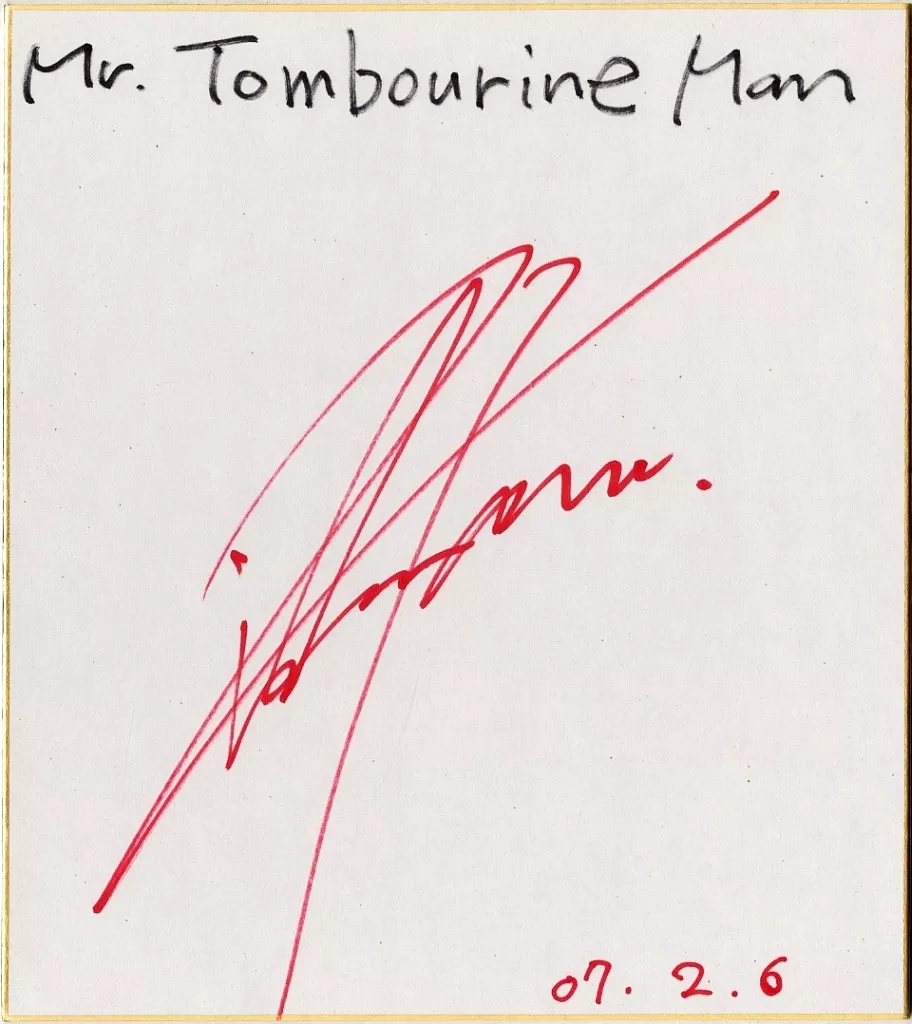 Mr. Tombourine Man
07. 2. 6